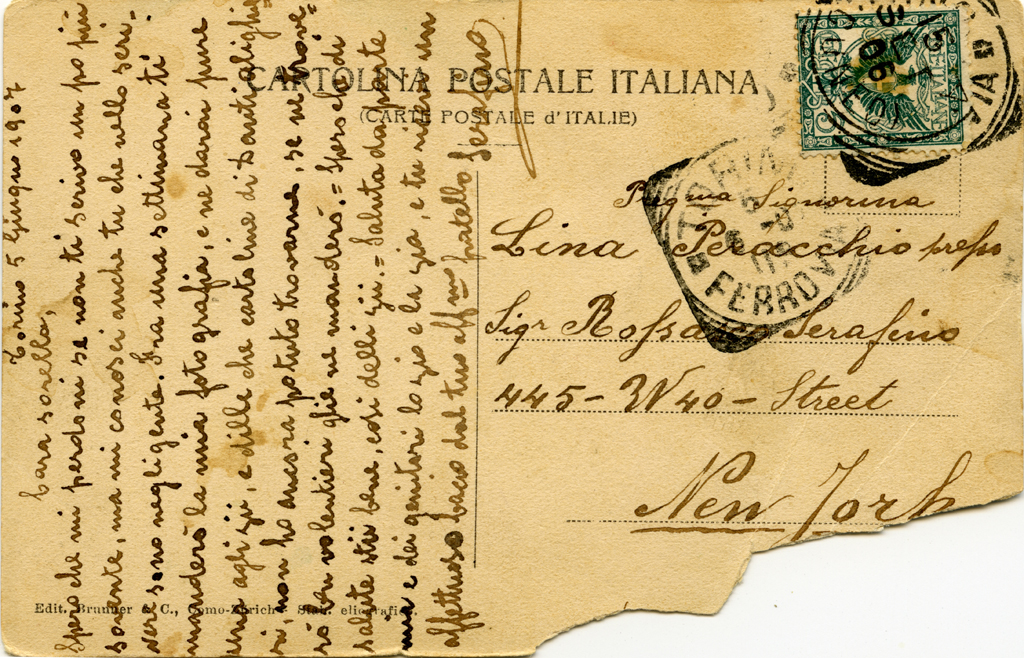 CARTOLINA POSTALE ITALIANA
(CARTE POSTALE d'ITALIE)
Torino 5 Giugno 1907
Cara sorella,
Spero che mi perdoni se non ti scrivo un po più
sovente, ma mi conosci anche tu che nello scri-
vere sono negligente. Fra una settimana ti
manderò la mia fotografia, e ne darai pure
una agli zii, e dille che cartoline di
non ho ancora potuto trovarne, se ne trove-
rò ben volentieri glie ne manderò.= Spero che di
salute stii bene, così delli zii.= Saluta da parte
mia e dei genitori lo zio e la zia, e tu ricevi un
affettuoso bacio dal tuo aff.mo fratello Serafino
Pregma Signorina
Lina Peracchio presso
Sigr Serafino
445 - W 40 - Street
New York
TORINO
FERROVIA
Edit. Brunner & C., Como-Zürich - Stab. eliografic.